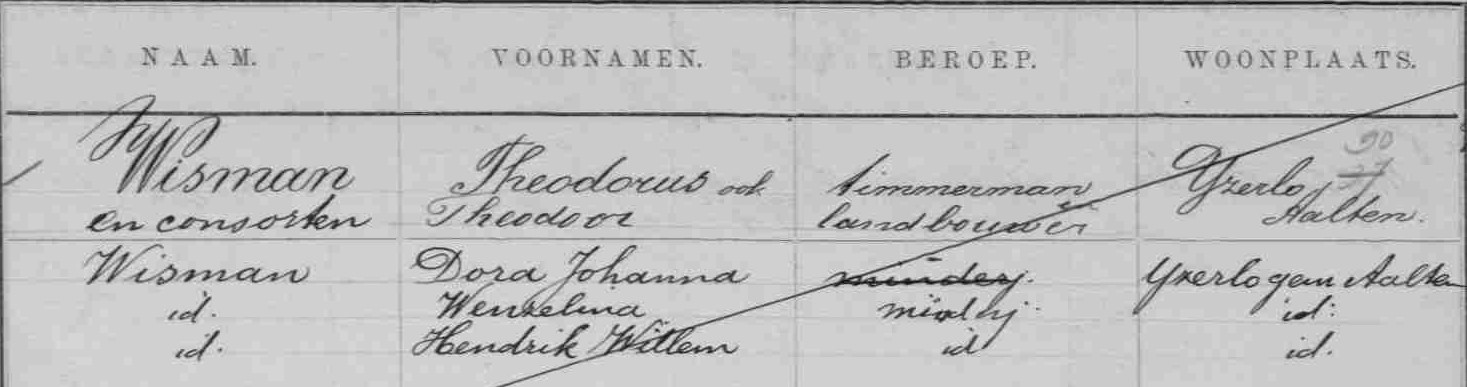 NAAM. VOORNAMEN. BEROEP. WOONPLAATS.
90
27
Wisman Theodorus ook timmerman Yzerlo,
en consorten Theodoor landbouwer Aalten.
Wisman Dora Johanna minderj. Yzerlo gem Aalten
id. Wenzelina mindj. id.
id. Hendrik Willem id id.